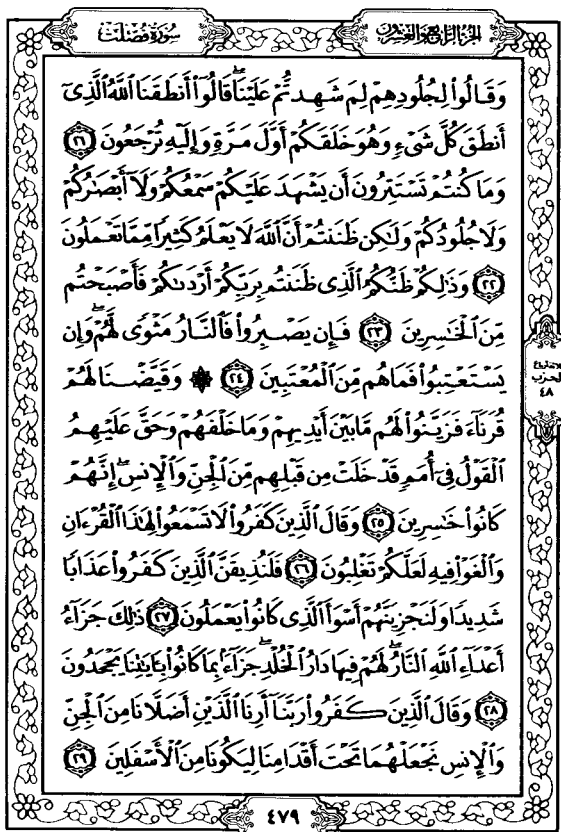 سُورَةُ فُصِّلَتْ
الجُزْءُ الرَّابِعُ وَالعِشْرُونَ
وَقَالُوا۟ لِجُلُودِهِمْ لِمَ شَهِدتُّمْ عَلَيْنَا ۖ قَالُوٓا۟ أَنطَقَنَا ٱللَّهُ ٱلَّذِىٓ
أَنطَقَ كُلَّ شَىْءٍ وَهُوَ خَلَقَكُمْ أَوَّلَ مَرَّةٍ وَإِلَيْهِ تُرْجَعُونَ ٢١
وَمَا كُنتُمْ تَسْتَتِرُونَ أَن يَشْهَدَ عَلَيْكُمْ سَمْعُكُمْ وَلَآ أَبْصَٰرُكُمْ
وَلَا جُلُودُكُمْ وَلَٰكِن ظَنَنتُمْ أَنَّ ٱللَّهَ لَا يَعْلَمُ كَثِيرًا مِّمَّا تَعْمَلُونَ
٢٢ وَذَٰلِكُمْ ظَنُّكُمُ ٱلَّذِى ظَنَنتُم بِرَبِّكُمْ أَرْدَىٰكُمْ فَأَصْبَحْتُم
مِّنَ ٱلْخَٰسِرِينَ ٢٣ فَإِن يَصْبِرُوا۟ فَٱلنَّارُ مَثْوًى لَّهُمْ ۖ وَإِن
يَسْتَعْتِبُوا۟ فَمَا هُم مِّنَ ٱلْمُعْتَبِينَ ٢٤ ۞ وَقَيَّضْنَا لَهُمْ
قُرَنَآءَ فَزَيَّنُوا۟ لَهُم مَّا بَيْنَ أَيْدِيهِمْ وَمَا خَلْفَهُمْ وَحَقَّ عَلَيْهِمُ
ٱلْقَوْلُ فِىٓ أُمَمٍ قَدْ خَلَتْ مِن قَبْلِهِم مِّنَ ٱلْجِنِّ وَٱلْإِنسِ ۖ إِنَّهُمْ
كَانُوا۟ خَٰسِرِينَ ٢٥ وَقَالَ ٱلَّذِينَ كَفَرُوا۟ لَا تَسْمَعُوا۟ لِهَٰذَا ٱلْقُرْءَانِ
وَٱلْغَوْا۟ فِيهِ لَعَلَّكُمْ تَغْلِبُونَ ٢٦ فَلَنُذِيقَنَّ ٱلَّذِينَ كَفَرُوا۟ عَذَابًا
شَدِيدًا وَلَنَجْزِيَنَّهُمْ أَسْوَأَ ٱلَّذِى كَانُوا۟ يَعْمَلُونَ ٢٧ ذَٰلِكَ جَزَآءُ
أَعْدَآءِ ٱللَّهِ ٱلنَّارُ ۖ لَهُمْ فِيهَا دَارُ ٱلْخُلْدِ ۖ جَزَآءًۢ بِمَا كَانُوا۟ بِـَٔايَٰتِنَا يَجْحَدُونَ
٢٨ وَقَالَ ٱلَّذِينَ كَفَرُوا۟ رَبَّنَآ أَرِنَا ٱلَّذَيْنِ أَضَلَّانَا مِنَ ٱلْجِنِّ
وَٱلْإِنسِ نَجْعَلْهُمَا تَحْتَ أَقْدَامِنَا لِيَكُونَا مِنَ ٱلْأَسْفَلِينَ ٢٩
الحزب
٤٨
٤٧٩